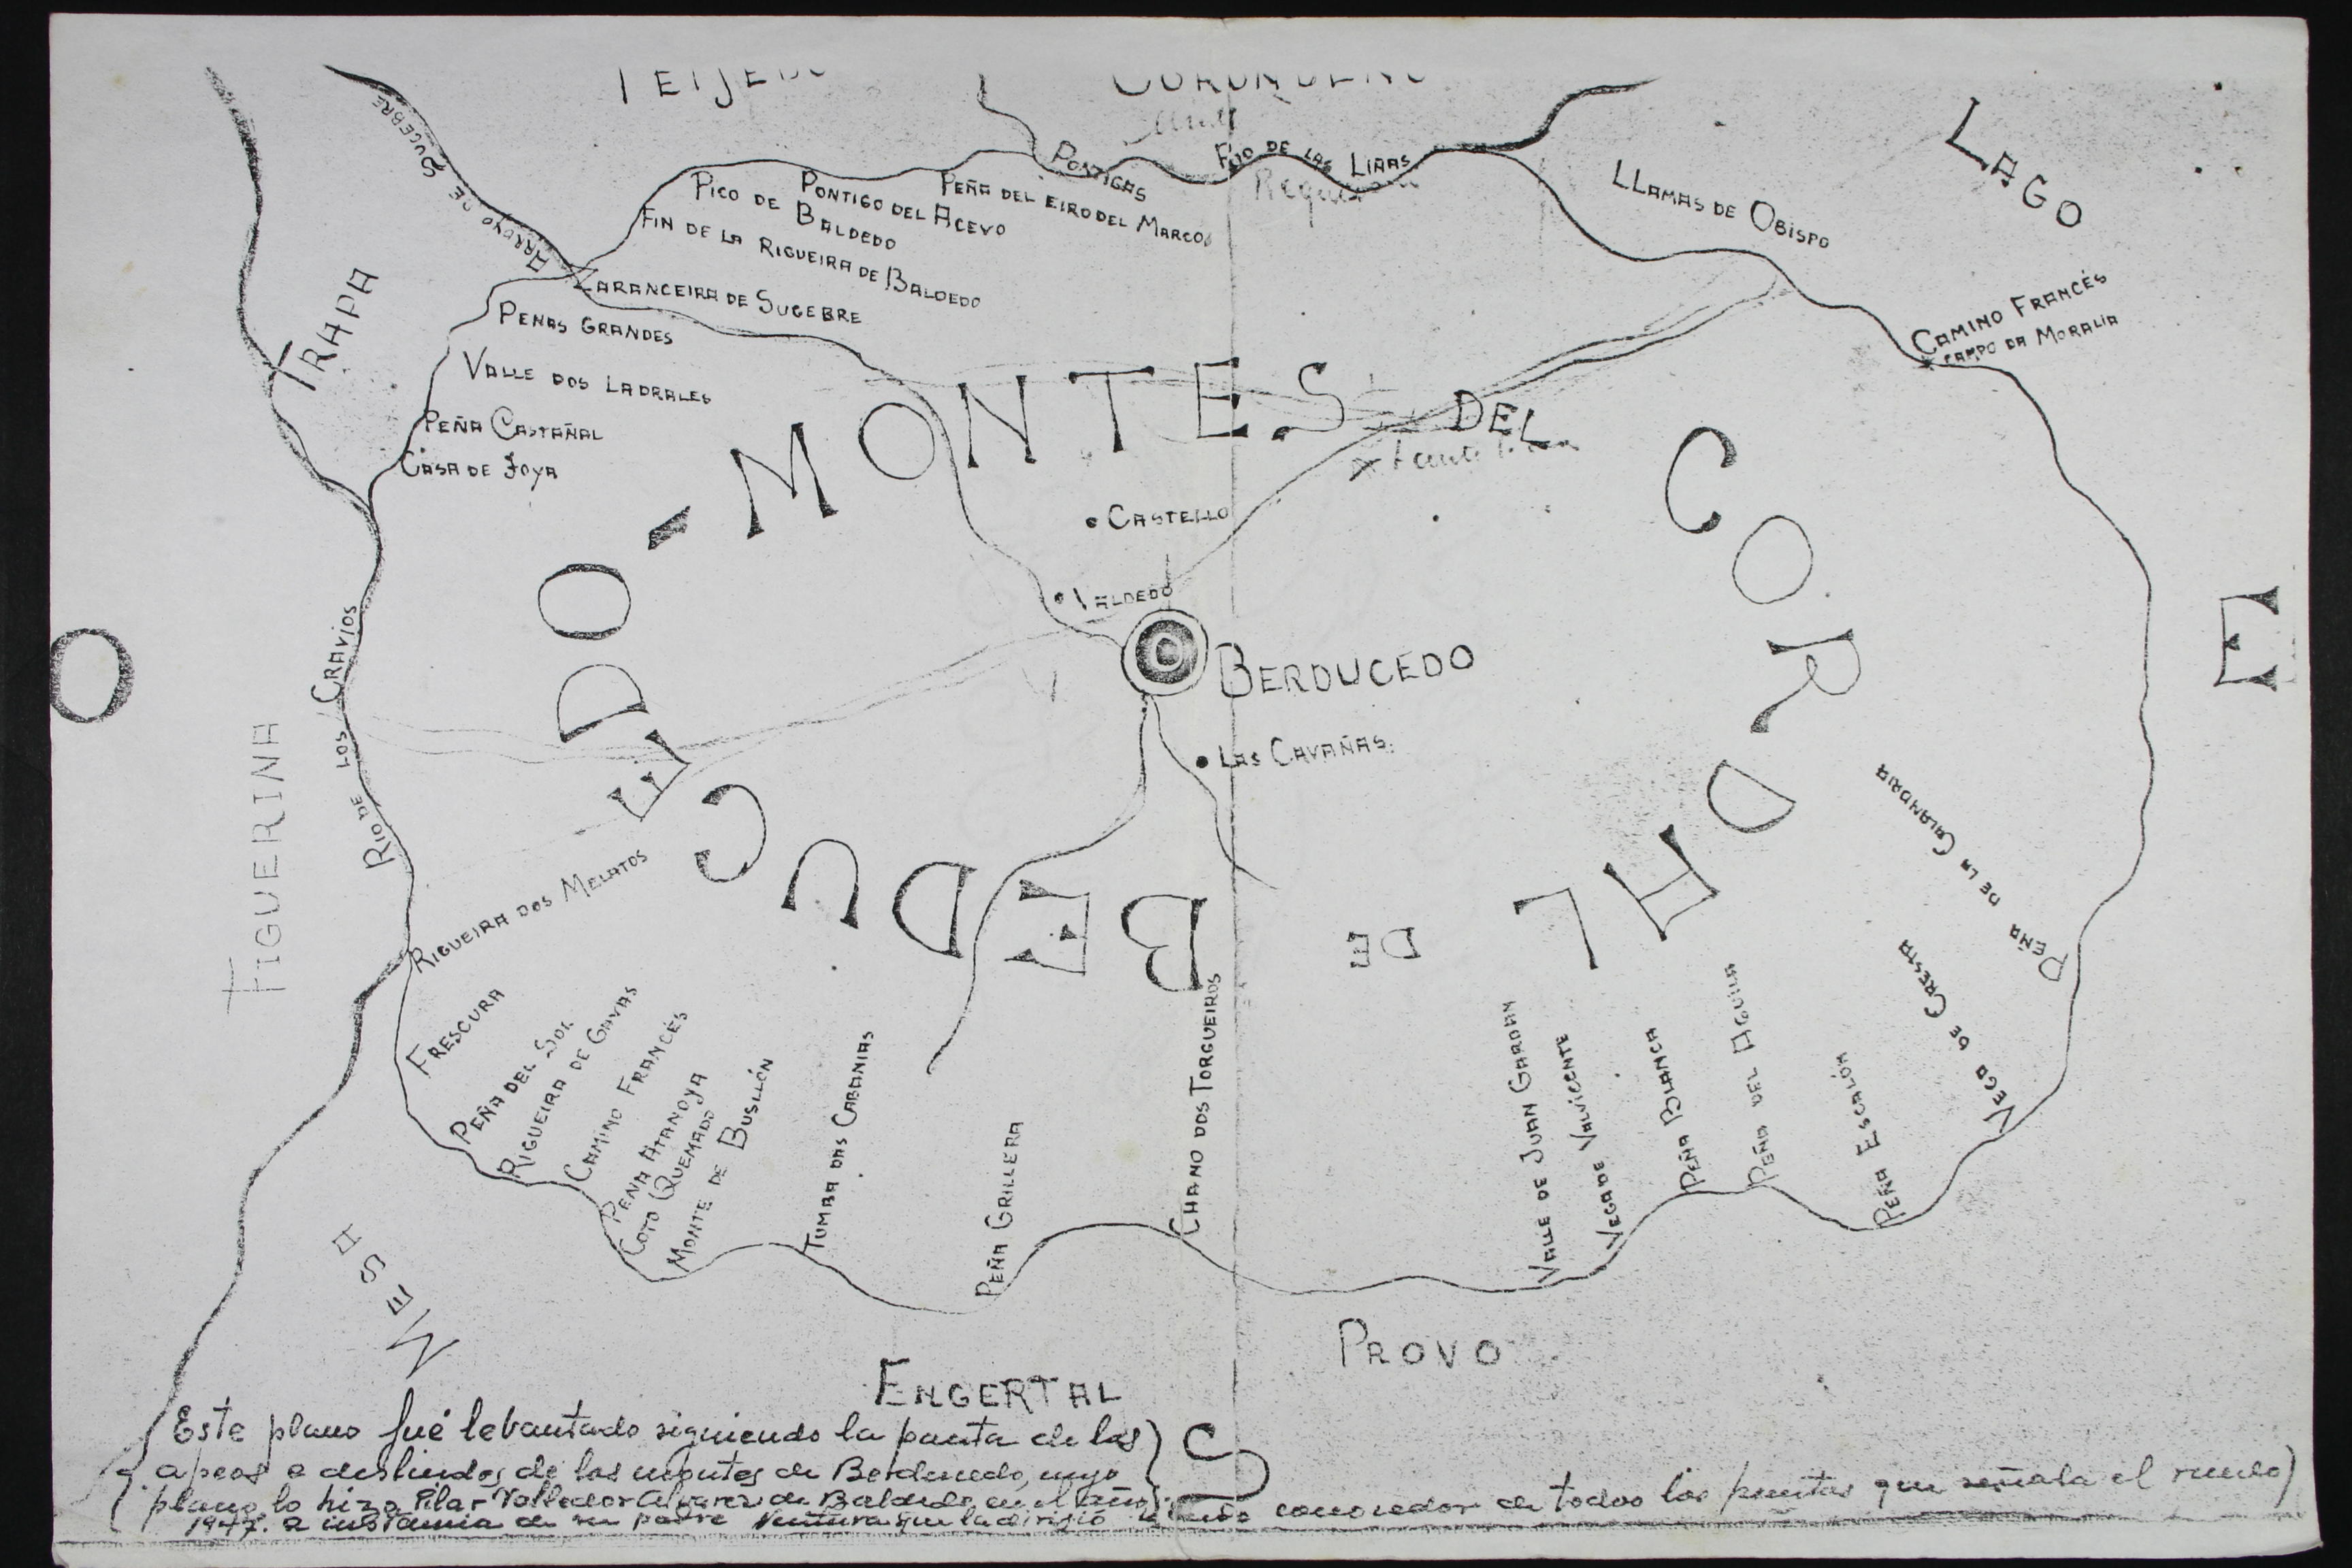 ARROYO DE SUCEBRE
PONTIGAS
FOJO DE LAS LIRAS
LAGO
LLAMAS DE OBISPO
PICO DE BALDEDO
PONTIGO DEL ACEVO
PEÑA DEL EIRO DEL MARCO
FIN DE LA RIGUEIRA DE BALDEDO
ZARANCEIRA DE SUCEBRE
TRAPA
PENAS GRANDES
VALLE DOS LADRALES
PEÑA CASTAÑAL
CASA DE JOYA
CAMINO FRANCÉS
CAMPO DA MORALIA
BEDUCEDO - MONTES DEL CORDAL DE
CASTELLO
VALDEDO
BERDUCEDO
LAS CAVAÑAS
O
E
RIO DE LOS CRAVIOS
FIGUERINA
RIGUEIRA DOS MELATOS
FRESCURA
PEÑA DEL SOL
RIGUEIRA DE GAVAS
CAMINO FRANCÉS
PENA ATANOYA
COTO QUEMADO
MONTE DE BUSLLÓN
TUMBA DAS CABANIAS
PEÑA GRILLERA
CHANO DOS TORGUEIROS
VALLE DE JUAN GARDAN
VEGA DE VALVICENTE
PEÑA BLANCA
PEÑA DEL AGUILA
PEÑA ESCALÓN
VEGA DE CRESTA
PEÑA DE LA CALANDRIA
MESA
ENGERTAL
PROVO
S
Este plano fué lebantado siguiendo la pauta de los
apeos e deslindes de los montes de Berducedo, cuyo
plano lo hizo Pilar Valledor Alvarez de Baldedo, en el año
1947. a instancia de su padre Ventura que la dirigió siendo conocedor de todos los puntos que señala el ruedo)